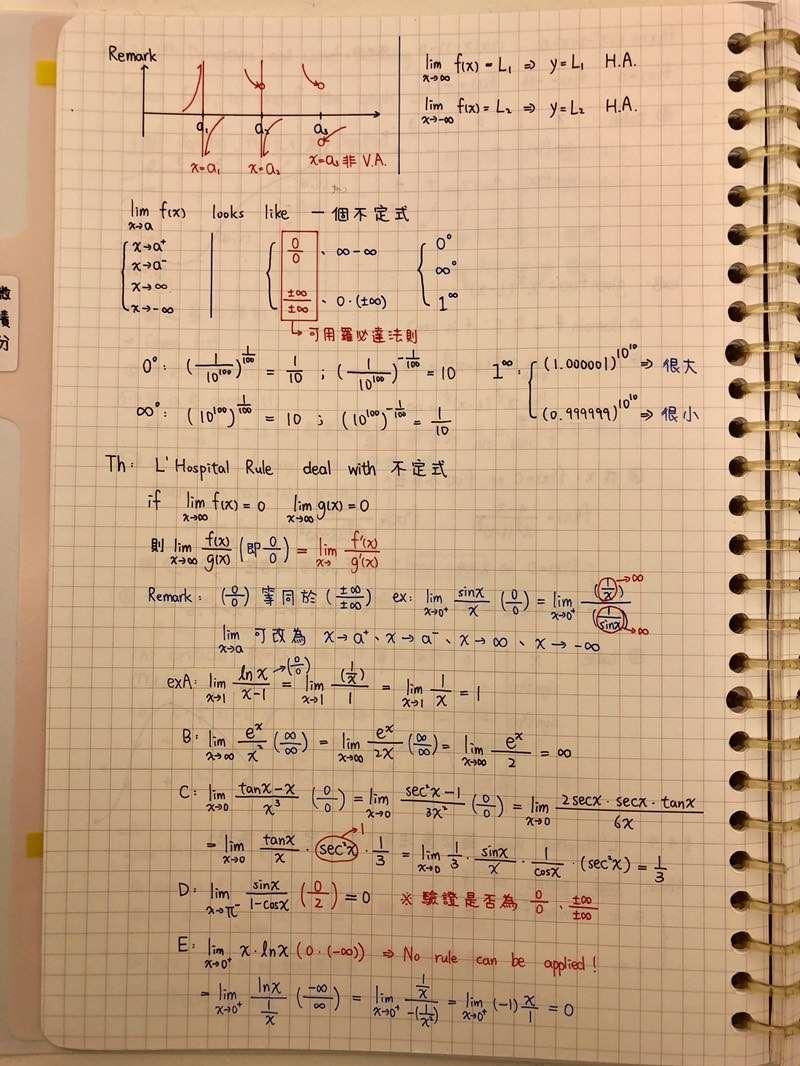 Remark
lim x→∞ f(x) = L₁ ⇒ y = L₁ H.A.
lim x→-∞ f(x) = L₂ ⇒ y = L₂ H.A.
a₁ a₂ a₃
x=a₁ x=a₂ x=a₃ 非 V.A.
lim x→a f(x) looks like 一個不定式
{ x→a⁺ x→a⁻ x→∞ x→-∞
{ 0/0、∞-∞ ±∞/±∞、0·(±∞)
{ 0⁰ ∞⁰ 1^∞
↳ 可用羅必達法則
0⁰: (1/10¹⁰⁰)^(1/100) = 1/10 ; (1/10¹⁰⁰)^(-1/100) = 10
∞⁰: (10¹⁰⁰)^(1/100) = 10 ; (10¹⁰⁰)^(-1/100) = 1/10
1^∞: { (1.000001)^(10^10) ⇒ 很大
(0.999999)^(10^10) ⇒ 很小
微積分
Th: L'Hospital Rule deal with 不定式
if lim x→∞ f(x) = 0 lim x→∞ g(x) = 0
則 lim x→∞ f(x)/g(x) (即 0/0) = lim x→ f'(x)/g'(x)
Remark: (0/0) 等同於 (±∞/±∞) ex: lim x→0⁺ sinx/x (0/0) = lim x→0⁺ (1/x)→∞ / (1/sinx)→∞
lim x→a 可改為 x→a⁺、x→a⁻、x→∞、x→-∞
exA: lim x→1 lnx/(x-1) →(0/0) = lim x→1 (1/x)/1 = lim x→1 1/x = 1
B: lim x→∞ eˣ/x² (∞/∞) = lim x→∞ eˣ/2x (∞/∞) = lim x→∞ eˣ/2 = ∞
C: lim x→0 (tanx-x)/x³ (0/0) = lim x→0 (sec²x-1)/3x² (0/0) = lim x→0 (2secx·secx·tanx)/6x
= lim x→0 tanx/x · sec²x →1 · 1/3 = lim x→0 1/3 · sinx/x · 1/cosx · (sec²x) = 1/3
D: lim x→π⁻ sinx/(1-cosx) (0/2) = 0 ※ 驗證是否為 0/0、±∞/±∞
E: lim x→0⁺ x·lnx (0·(-∞)) ⇒ No rule can be applied!
= lim x→0⁺ lnx/(1/x) (-∞/∞) = lim x→0⁺ (1/x)/-(1/x²) = lim x→0⁺ (-1) x/1 = 0